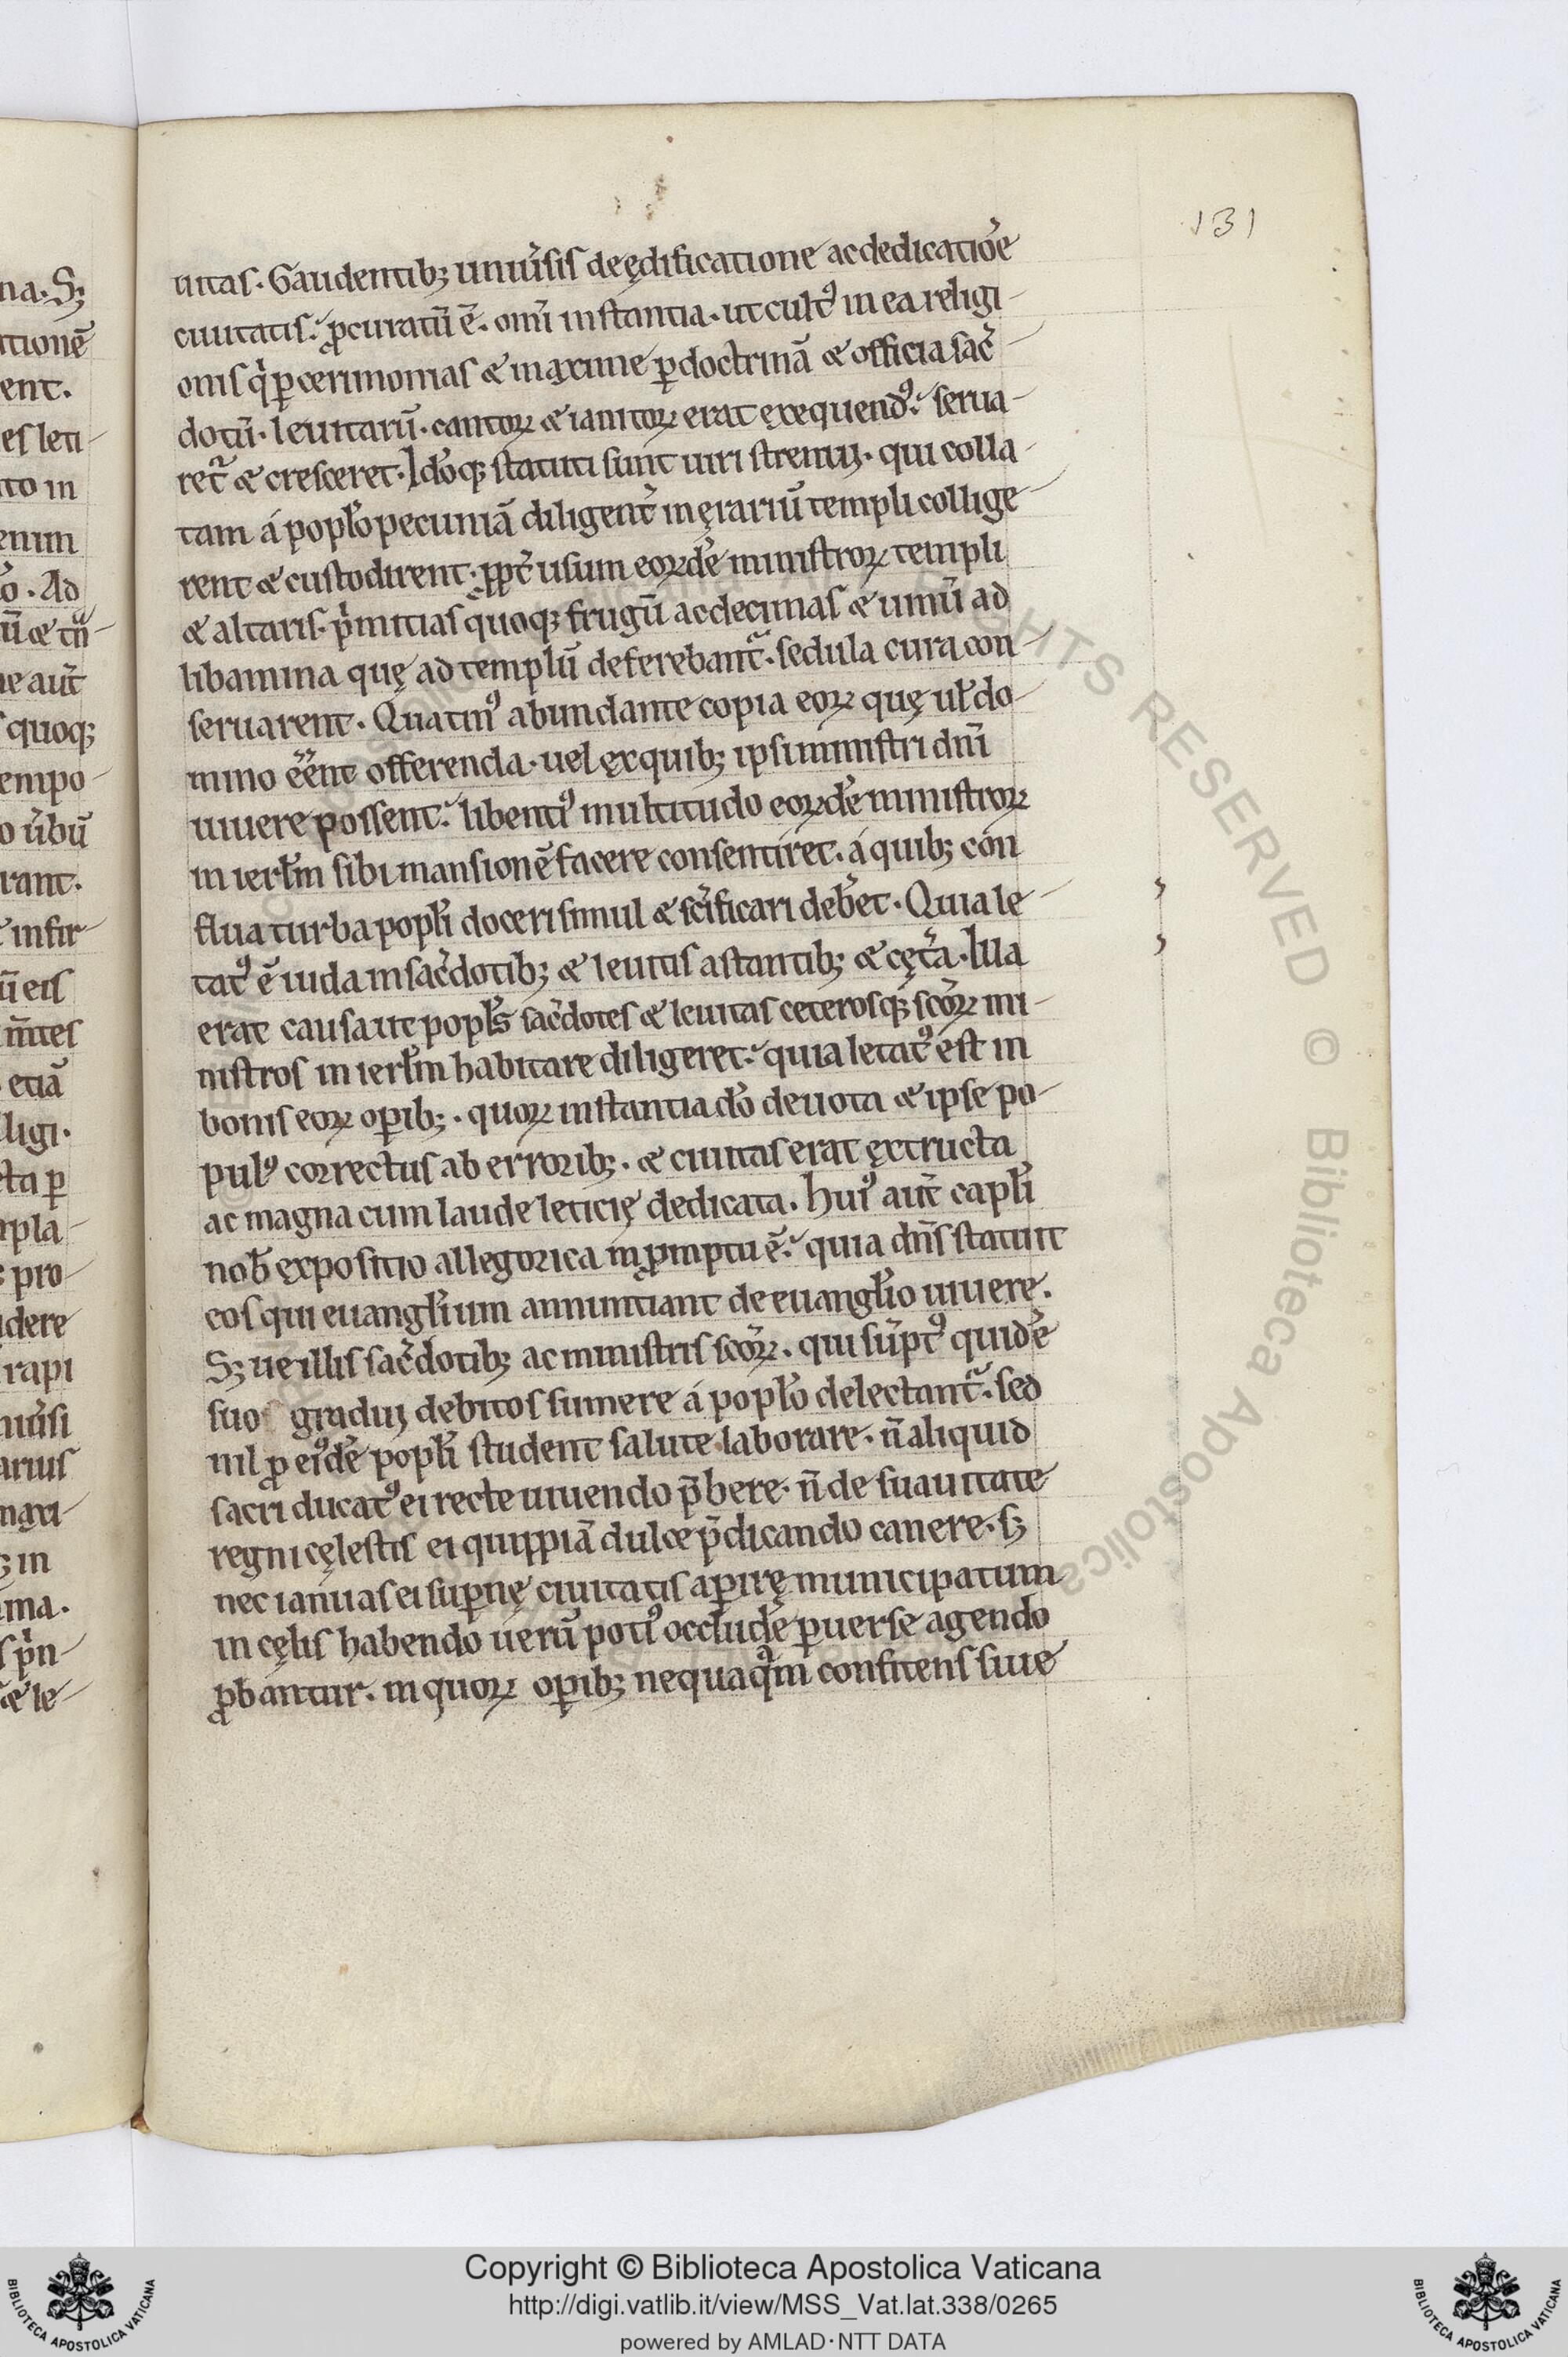 131
uitas. Gaudentib; uniu̓sis de ędificatione ac dedicatiōe
ciuitatis. ꝓcuratū ē. omī instantia. ut cultꝰ in ea religi-
onis q̇ ꝑ cerimonias & maxime ꝑ doctrinā & officia sac̓-
dotū. leuitarū. cantoꝝ & ianitoꝝ erat exequendꝰ. serua-
ret᷑ & cresceret. Id̓oq; statuti sunt uiri strenuij. qui colla-
tam á popl̓o pecuniā diligent̓ in ęrariū templi collige-
rent & custodirent. ꝓpt̓ usum eoꝝdē ministroꝝ templi
& altaris. p̓mitias quoq; frugū ac decimas & uinū ad
libamina quę ad templū deferebant᷑. sedula cura con-
seruarent. Quatinꝰ abundante copia eoꝝ quę ul̓ do-
mino ēēnt offerenda. uel ex quib; ipsi ministri dn̄i
uiuere possent. libentiꝰ multitudo eoꝝdē ministroꝝ
in ierl̓m sibi mansionē facere consentiret. á quib; con
flua turba popl̓i doceri simul & sc̄ificari deb̓et. Quia le-
tatꝰ ē iuda in sac̓dotib; & leuitis astantib; & cęt̓a. Illa
erat causa ut popl̓s sac̓dotes & leuitas ceterosq; sc̄oꝝ mi-
nistros in ierl̓m habitare diligeret. quia letatꝰ est in
bonis eoꝝ oꝑib;. quoꝝ instantia d̓o deuota & ipse po-
pulꝰ correctus ab errorib;. & ciuitas erat extructa
ac magna cum laude leticię dedicata. huiꝰ aut̄ capl̓i
nob̄ expositio allegorica in ꝓmptu ē. quia dn̄s statuit
eos qui euangl̓ium annuntiant de euangl̓io uiuere.
S; ue illis sac̓dotib; ac ministris sc̄oꝝ. qui sūptꝰ quidē
suo gradui debitos sumere á popl̓o delectant᷑. sed
nil ꝓ eiꝰdē popl̓i student salute laborare. n̄ aliquid
sacri ducatꝰ ei recte uiuendo p̄bere. n̄ de suauitate
regni cęlestis ei quippiā dulce p̄dicando canere. s;
nec ianuas ei suꝑnę ciuitatis aꝑire municipatum
in cęlis habendo uerū potiꝰ occlude̓ ꝑuerse agendo
ꝓbantur. in quoꝝ oꝑib; nequaq̄m confitens siue
Copyright © Biblioteca Apostolica Vaticana
http://digi.vatlib.it/view/MSS_Vat.lat.338/0265
powered by AMLAD·NTT DATA
BIBLIOTECA APOSTOLICA VATICANA
BIBLIOTECA APOSTOLICA VATICANA